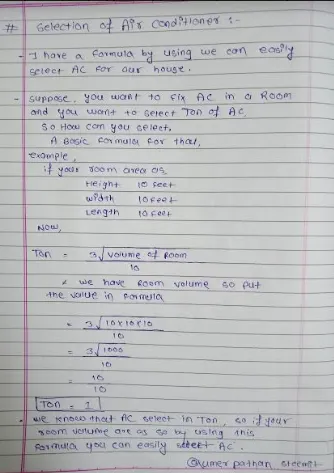 # Selection of Air Conditioner :-
- I have a formula by using we can easily
select AC for our house.
- suppose, you want to fix AC in a Room
and you want to select Ton of AC
So How can you select.
A Basic formula for that,
example,
if your room area as
Height 10 feet
width 10 feet
Length 10 feet
Now,
Ton = 3√volume of Room
10
we have Room volume so put
the value in formula
= 3√10x10x10
10
= 3√1000
10
= 10
10
Ton = 1
- we know that AC select in Ton, so if your
room volume are as so by using this
formula you can easily select AC.
@umer pathan steemit